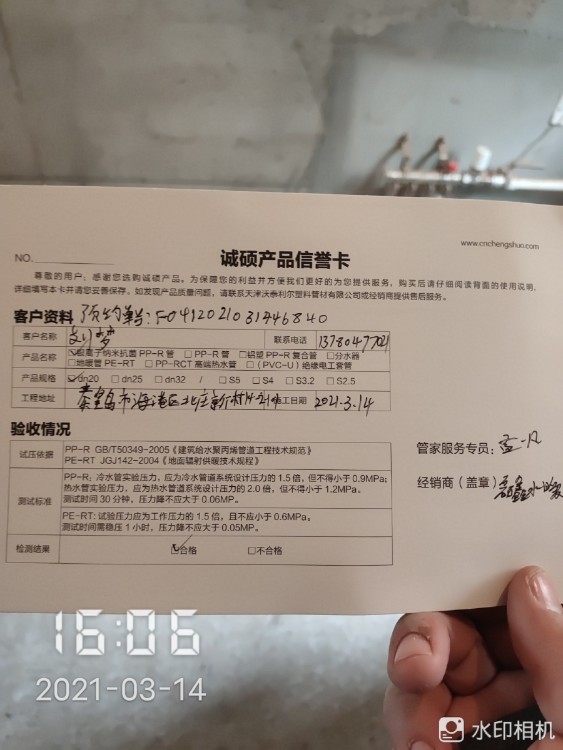 www.cnchengshuo.com
NO.
诚硕产品信誉卡
尊敬的用户：感谢您选购诚硕产品。为保障您的利益并方便我们更好的为您提供服务，购买后请仔细阅读背面的使用说明，
详细填写本卡并请您妥善保存。如发现产品质量问题，请联系天津沃泰利尔塑料管材有限公司或经销商提供售后服务。
客户资料 预约单:F0412021031446840
客户名称 刘梦 联系电话 13780477021
产品名称 ☑银离子纳米抗菌PP-R管 □PP-R管 □铝塑PP-R复合管 □分水器
□地暖管PE-RT □PP-RCT高端热水管 □(PVC-U)绝缘电工套管
产品规格 ☑dn20 □dn25 □dn32 / □S5 □S4 □S3.2 □S2.5
工程地址 秦皇岛市海港区北 新村 施工日期 2021.3.14
验收情况
试压依据 PP-R GB/T50349-2005《建筑给水聚丙烯管道工程技术规范》
PE-RT JGJ142-2004《地面辐射供暖技术规程》
测试标准 PP-R：冷水管实验压力，应为冷水管道系统设计压力的1.5倍，但不得小于0.9MPa；
热水管实验压力，应为热水管道系统设计压力的2.0倍，但不得小于1.2MPa。
测试时间30分钟，压力降不应大于0.06MP。
PE-RT：试验压力应为工作压力的1.5倍，且不应小于0.6MPa。
测试时间需稳压1小时，压力降不应大于0.05MP。
检测结果 ☑合格 □不合格
管家服务专员：孟一凡
经销商（盖章）
16:06
2021-03-14
水印相机